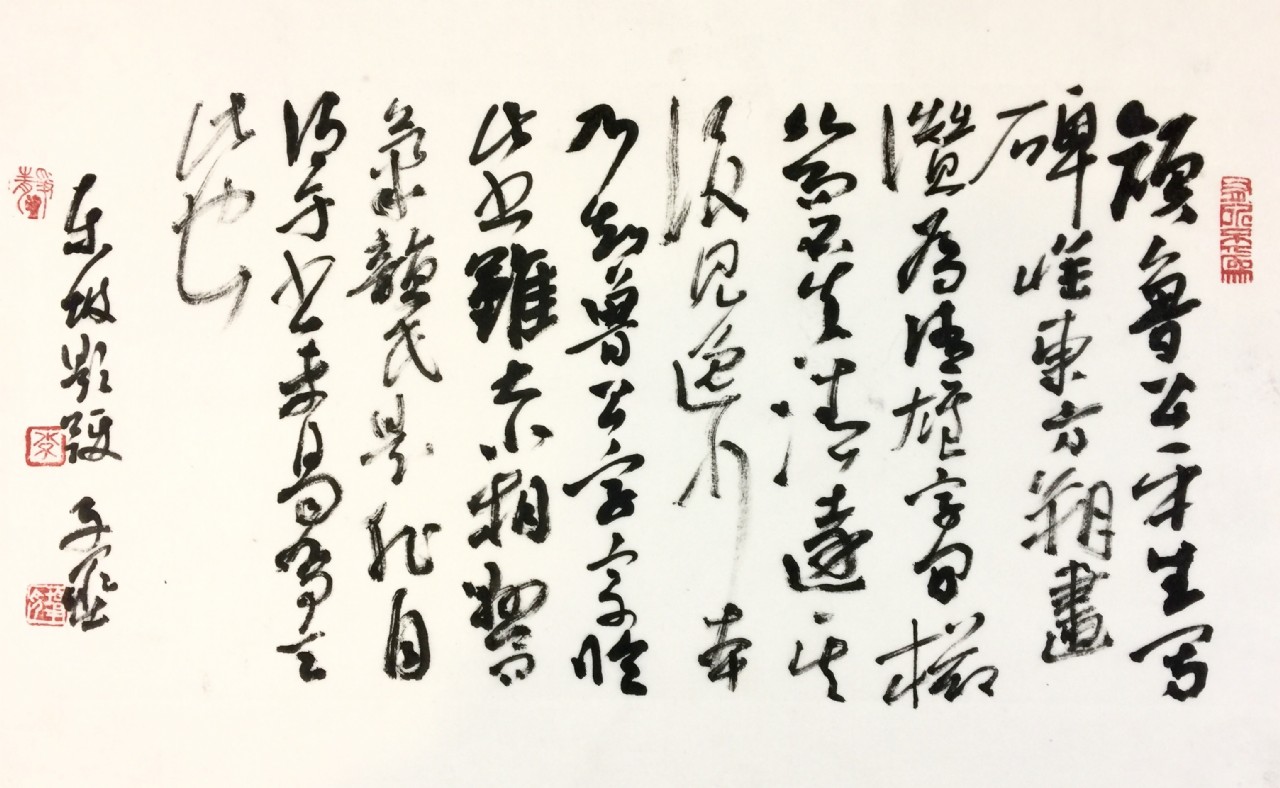 顔魯公平生写
碑惟東方朔畫
讚為清雄字間櫛
比而不失清遠其
後見逸少本
乃知魯公字字臨
此书雖大小相懸
氣韻良是非自
得于书未易為言
此也
東坡題跋